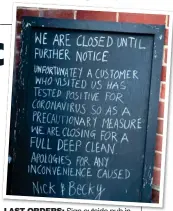 WE ARE CLOSED UNTIL
FURTHER NOTICE
UNFORTUNATEY A CUSTOMER
WHO VISITED US HAS
TESTED POSITIVE FOR
CORONAVIRUS SO AS A
PRECAUTIONARY MEASURE
WE ARE CLOSING FOR A
FULL DEEP CLEAN
APOLOGIES FOR ANY
INCONVENIENCE CAUSED
Nick & Becky
LAST ORDERS: Sign outside pub in